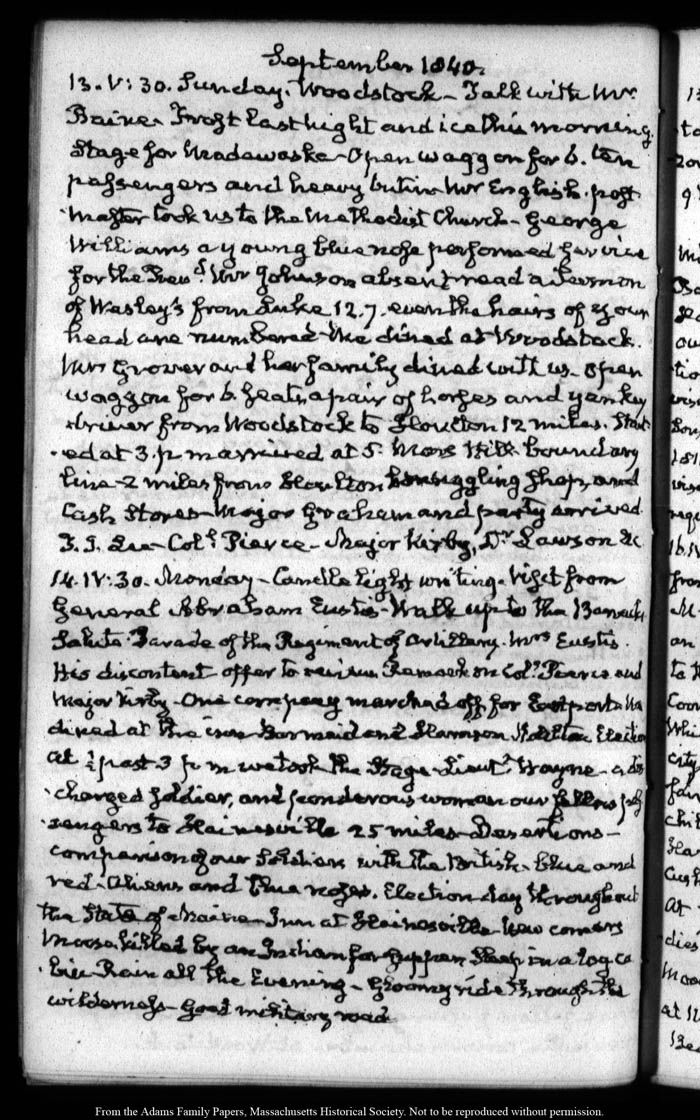 September 1840.
13. V:30. Sunday. Woodstock – Talk with Mr
Baire. Frost last night and ice this morning.
Stage for Madawaska – Open waggon for 6. ten
passengers and heavy Mr English. post
master took us to the Methodist Church – George
Williams a young bluenose performed service
for the Revd. Mr Johnson absent read a Sermon
of Wesley's from Luke 12.7. even the hairs of your
head are numbered – We dined at Woodstock.
Mrs Grover and her family dined with us – open
waggon for 6. seats, a pair of horses and yankey
driver from Woodstock to Houlton 12 miles. Start
ed at 3. p m arrived at 5. Mars Hill boundary
line – 2 miles from Houlton smuggling shop, and
Cash Stores – Major Graham and party arrived.
J. J. Lee – Coll. Pierce – Major Kirby, Dr Lawson &c
14. IV:30. Monday – Candle light writing. Visit from
General Abraham Eustis – Walk up to the Barracks
Salute. Parade of the Regiment of Artillery. Mrs Eustis.
His discontent offer to Remark on Coll. Pierce and
Major Kirby – One company marched off for Eastport – We
dined at the Barmaid and Harrison Election
at ½ past 3 p m we took the Stage. Lieutt. Wayne – a dis
charged soldier, and ponderous woman our fellow pas
sengers to Hainesville 25 miles – Desertions –
comparison of our Soldiers with the British. blue and
red – Aliens and blue noses. Election day throughout
the State of Maine – Inn at Hainesville – New comers
Moose killed by an Indian for supper. Sleep in a log ca
bin Rain all the Evening – Gloomy ride through the
wilderness – Good military road
From the Adams Family Papers, Massachusetts Historical Society. Not to be reproduced without permission.